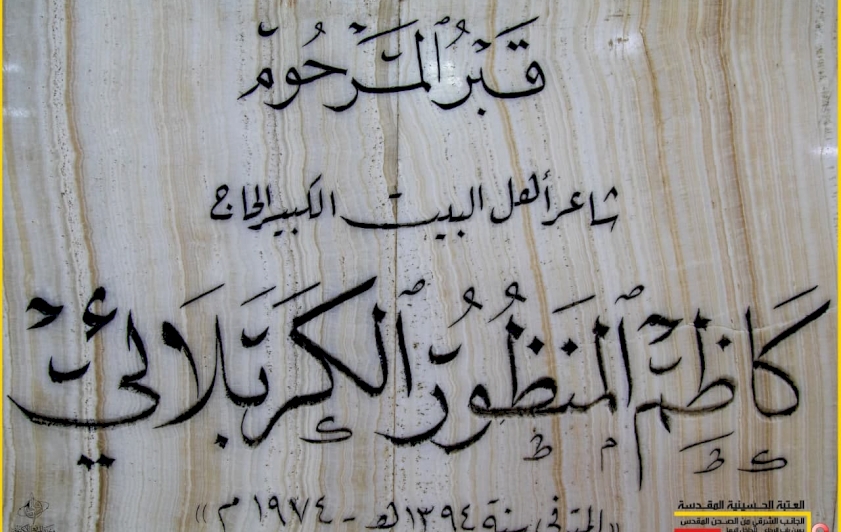 قَبْرُ المَرْحُومِ
شاعر أهل البيت الكبير الحاج
كَاظِم المَنظُورُ الكَرْبَلَائِيّ
((المتوفى سنة ١٣٩٤هـ - ١٩٧٤م))
العتبة الحسينية المقدسة
الجانب الشرقي من الصحن المقدس